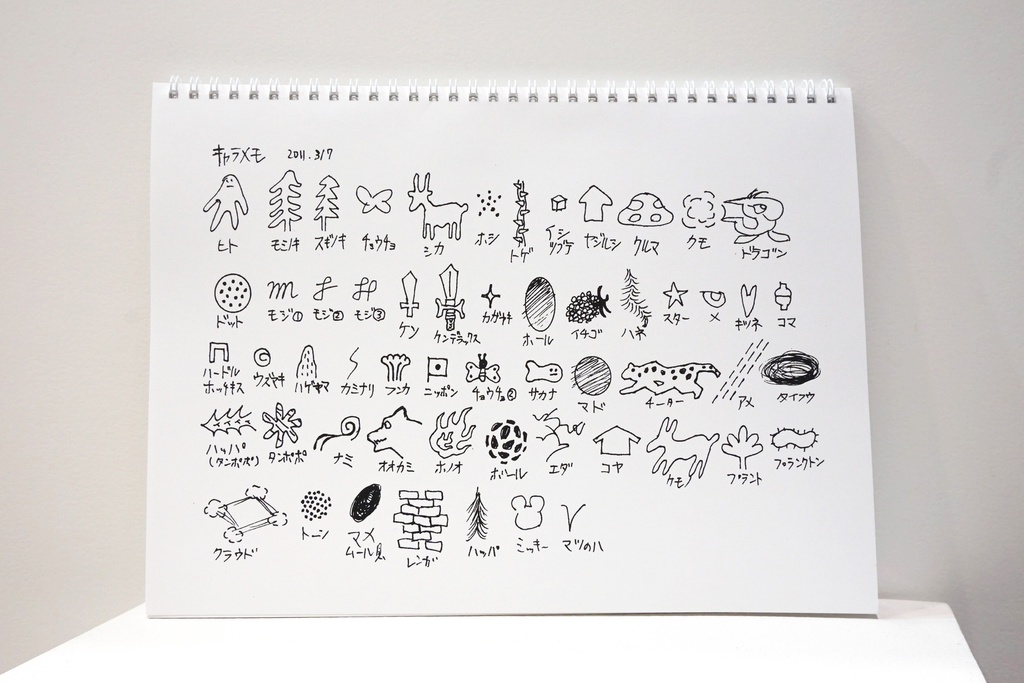 キャラメモ 2011.3/7
ヒト モミノキ スギノキ チョウチョ シカ ホシ トゲ イシ ツブテ ヤジルシ クルマ クモ ドラゴン
ドット モジ① モジ② モジ③ ケン ケンデラックス カガヤキ ホール イチゴ ハネ スター メ キツネ コマ
ハードル ホッチキス ウズマキ ハゲヤマ カミナリ フンカ ニッポン チョウチョ② サカナ マド チーター アメ タイフウ
ハッパ (タンポポ) タンポポ ナミ オオカミ ホノオ ボール エダ コヤ ケモノ プラント プランクトン
クラウド トーン マメ ムール貝 レンガ ハッパ ミッキー マツのハ